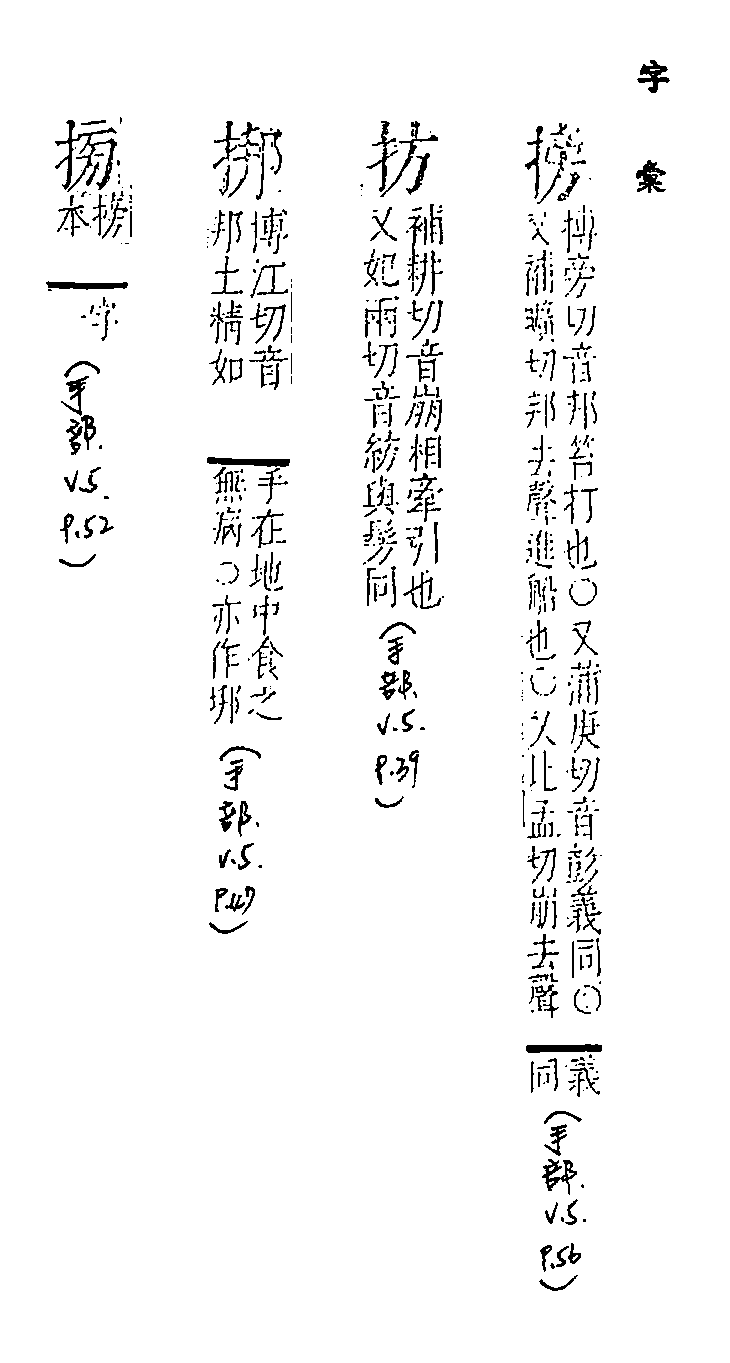 字彙
搒
博旁切音邦笞打也○又蒲庚切音彭義同○
又補曠切邦去聲進船也○又比孟切崩去聲
義
同
(手部.V.5.P.56)
㧍
補耕切音崩相牽引也
又妃兩切音紡與髣同
(手部.V.5.P.39)
挷
博江切音
邦土精如
手在地中食之
無病○亦作垹
(手部.V.5.P.47)
搒
本
字
(手部.V.5.P.52)